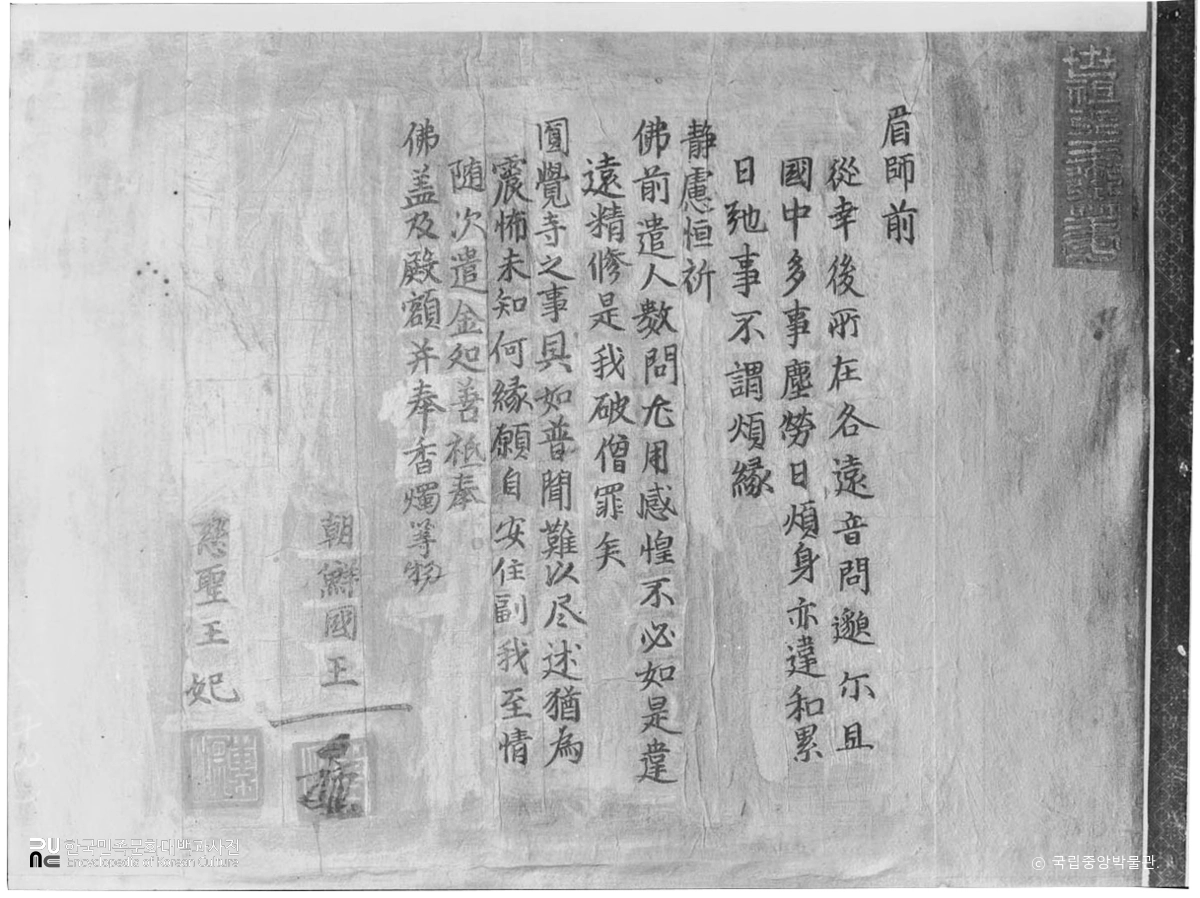 眉師前
從幸後所在各遠音問邈尓且
國中多事塵勞日煩身亦違和累
日弛事不謂煩緣
静慮恒祈
佛前遣人數問尤用感惶不必如是違
遠精修是我破僧罪矣
圓覺寺之事具如普聞難以尽述猶為
震怖未知何緣願自安住副我至情
随次遣金処善祗奉
佛盖及殿額并奉香燭等物
朝鮮國王
慈聖王妃
한국민족문화대백과사전
Encyclopedia of Korean Culture
© 국립중앙박물관